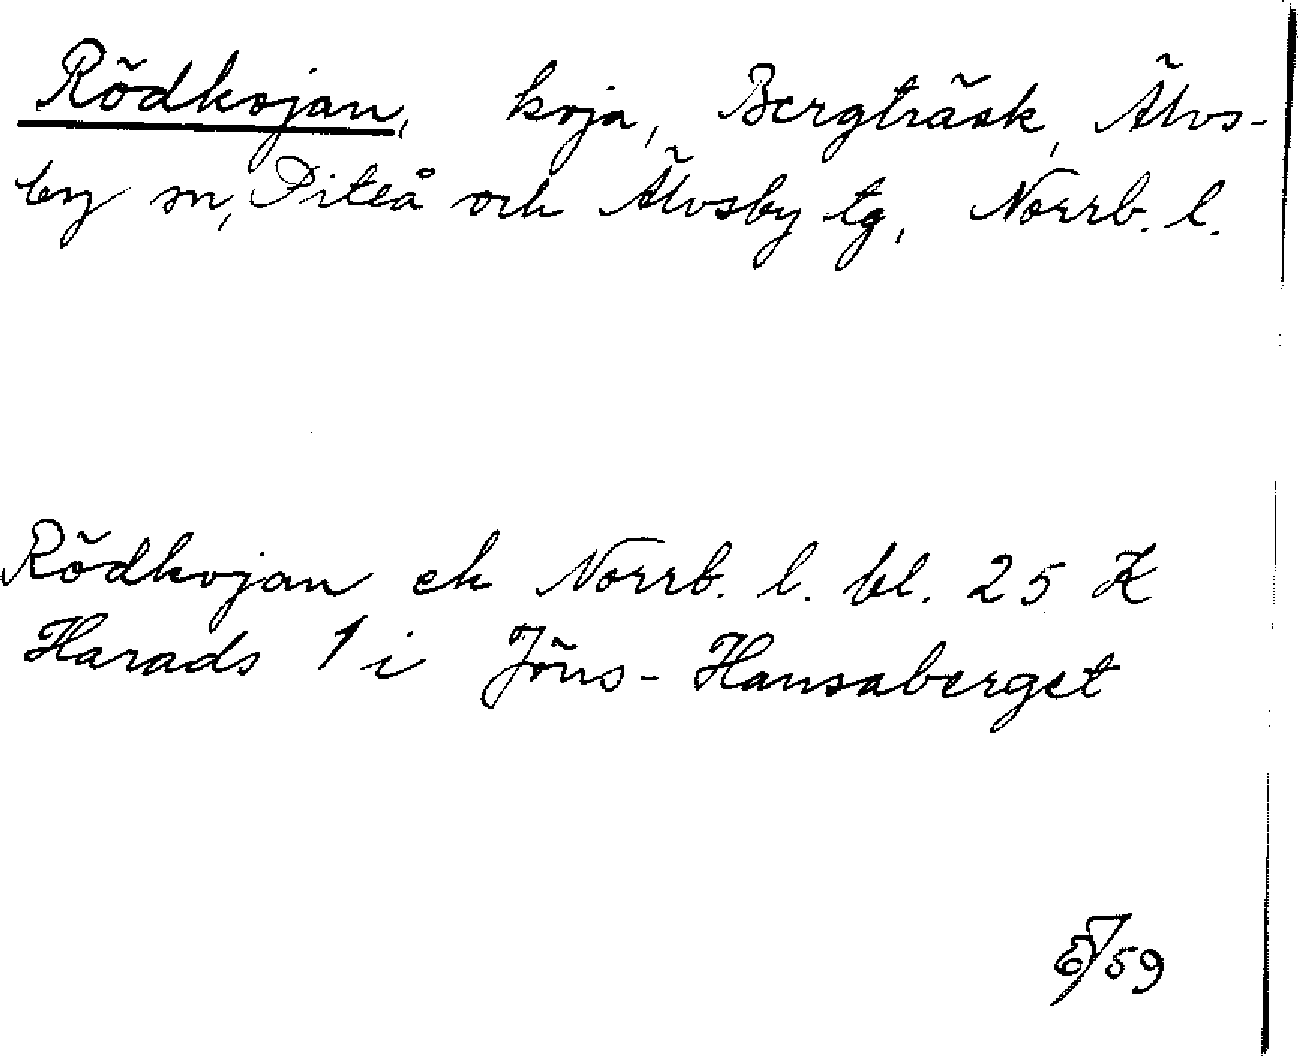 Rödkojan, koja, Bergträsk, Älvs-
by sn, Piteå och Älvsby tg, Norrb. l.
Rödkojan ek Norrb. l. bl. 25 K
Harads 1 i Jöns-Hansaberget
/59